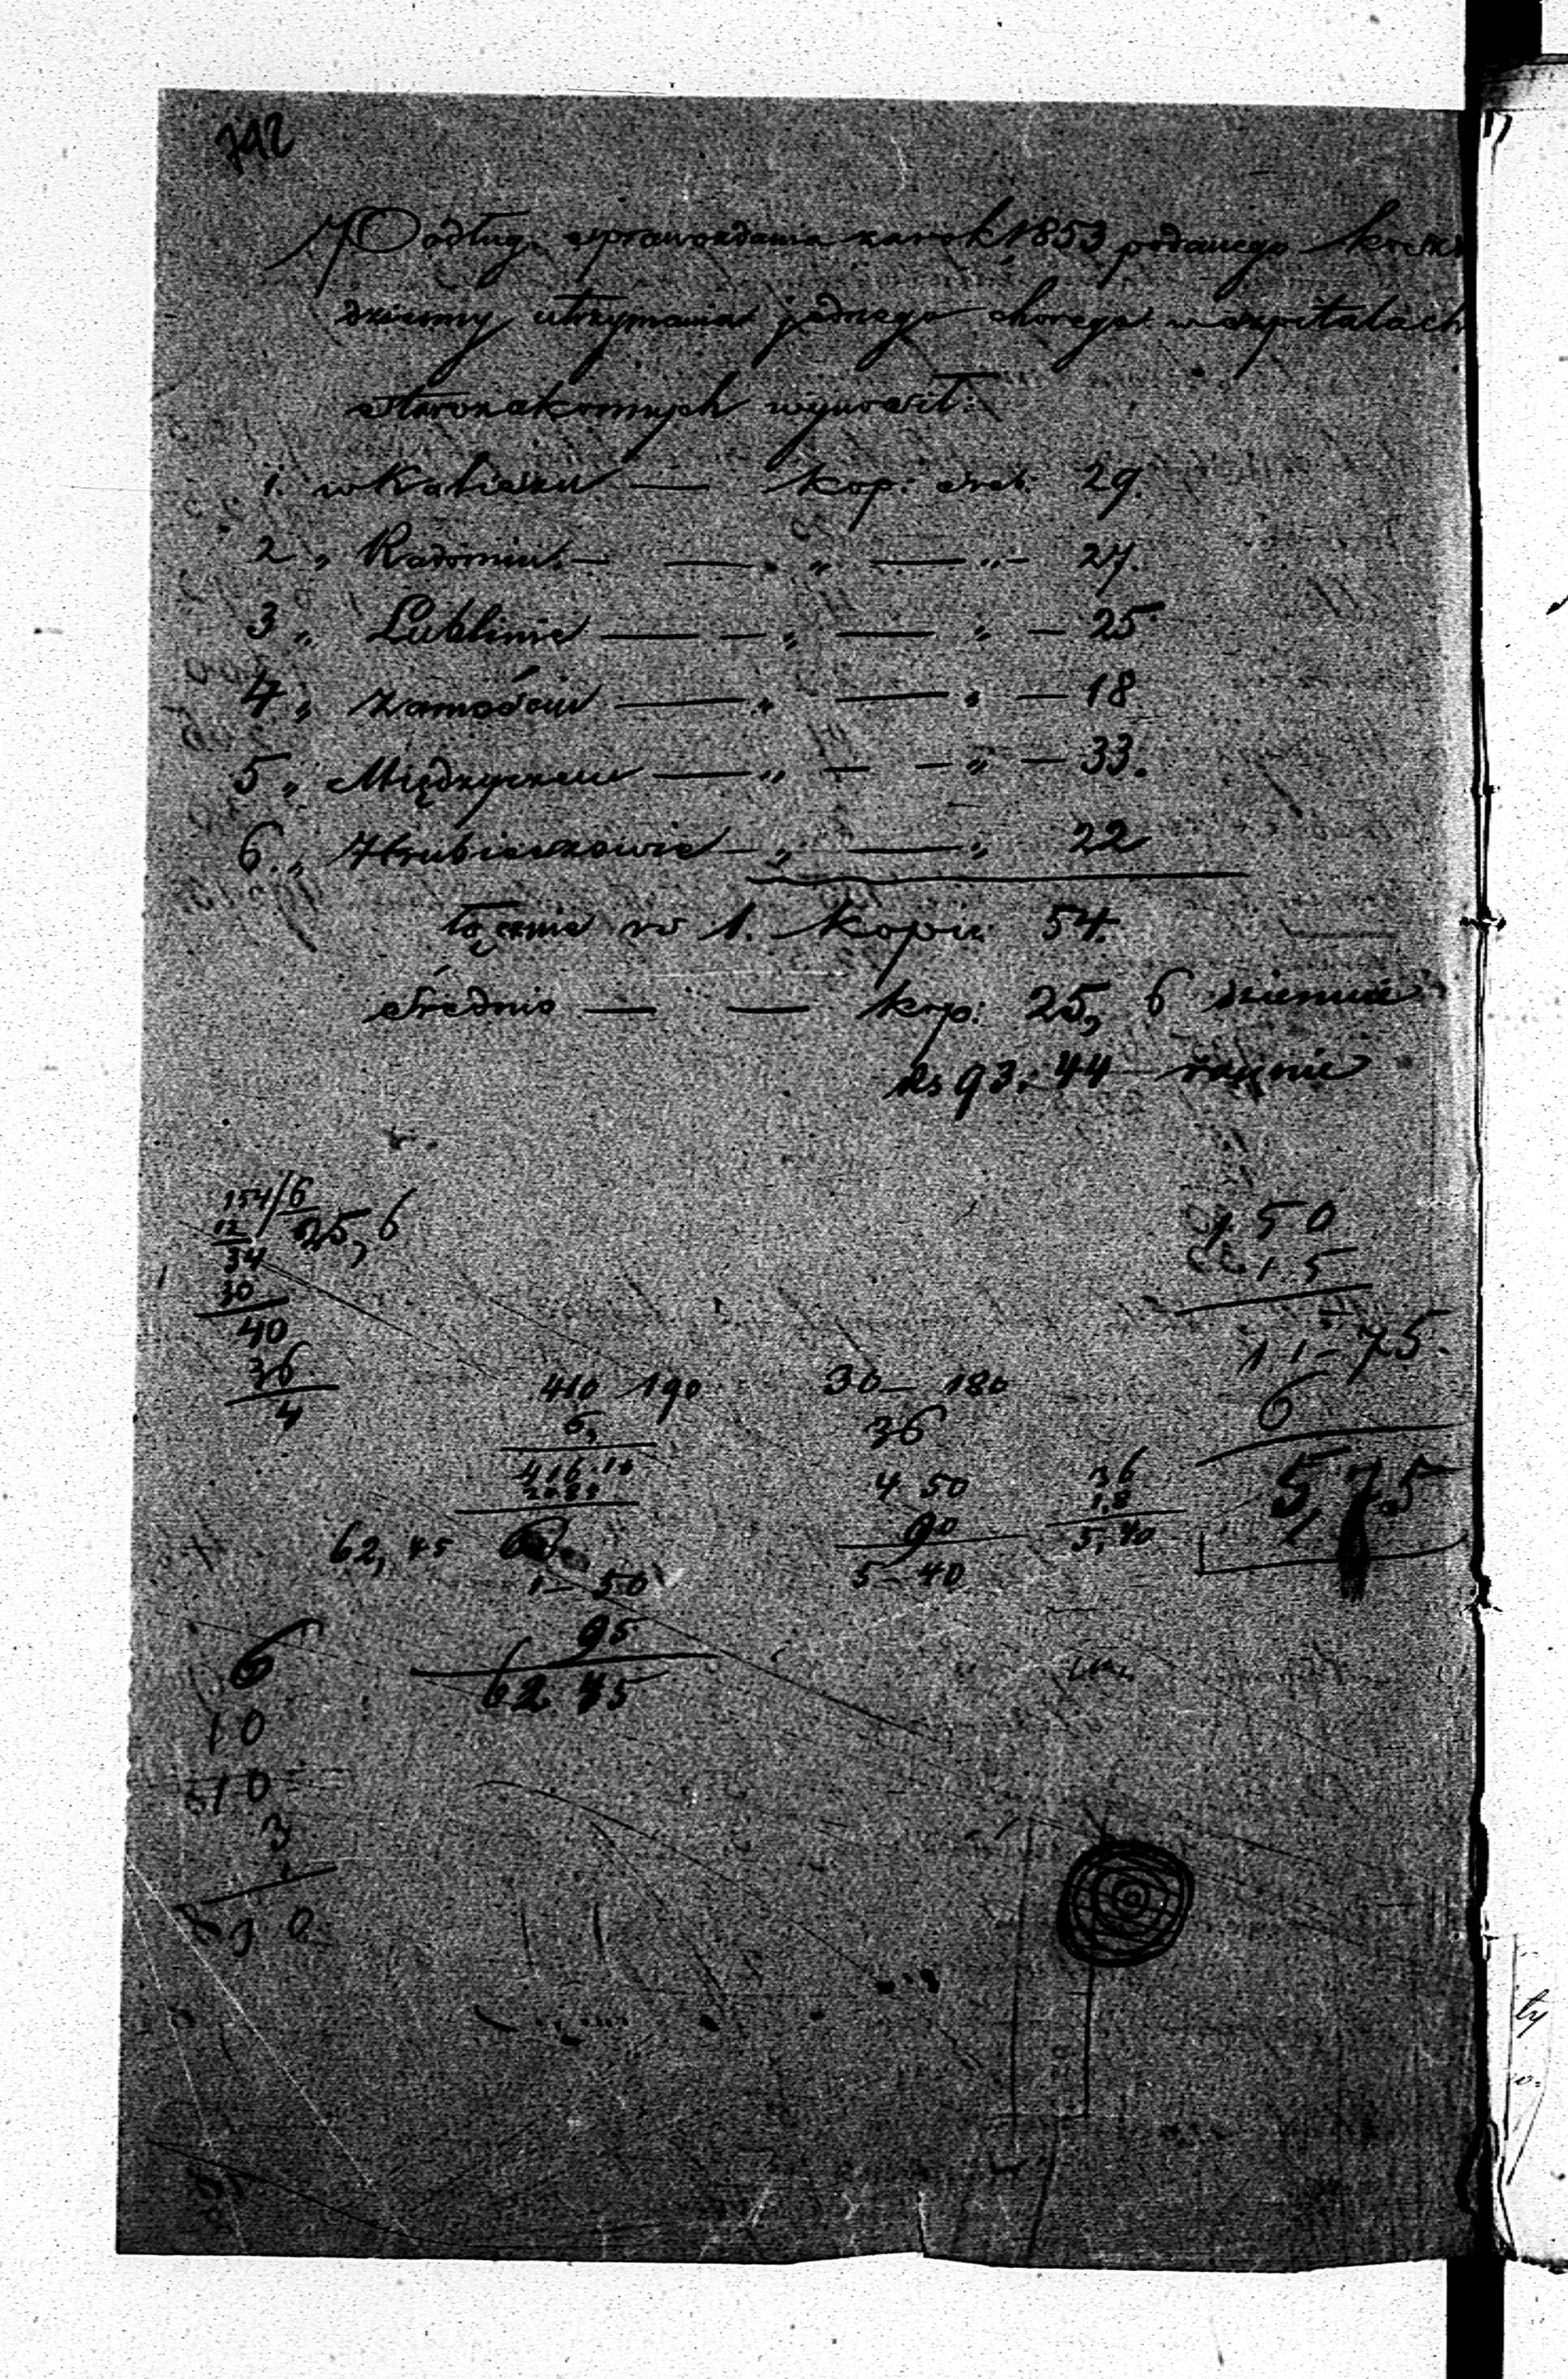 792
Podług sprawozdania za rok 1853 podanego koszt
dzienny utrzymania jednego chorego w szpitalach
starozakonnych wynosił:
1. w Kaliszu — kop: sreb. 29.
2 „ Radomiu. — — „ — „ — 27.
3 „ Lublinie — — „ — „ — 25
4 „ Zamościu — „ — „ — 18
5 „ Międzyrzecu — „ — — „ — 33.
6. „ Hrubieszowie — „ — „ 22
łącznie rs 1. kopi: 54.
średnio — — kop: 25, 6 dziennie
rs 93. 44 rocznie
154/6
12 25,6
34
30
40
36
4
1 50
1.5
11-75.
6
5,75
410 190
6,
416.10
62,45
1-50
95
62.45
30- 180
36
4 50
90
5-40
36
1.8
5,40
6
10
510
3